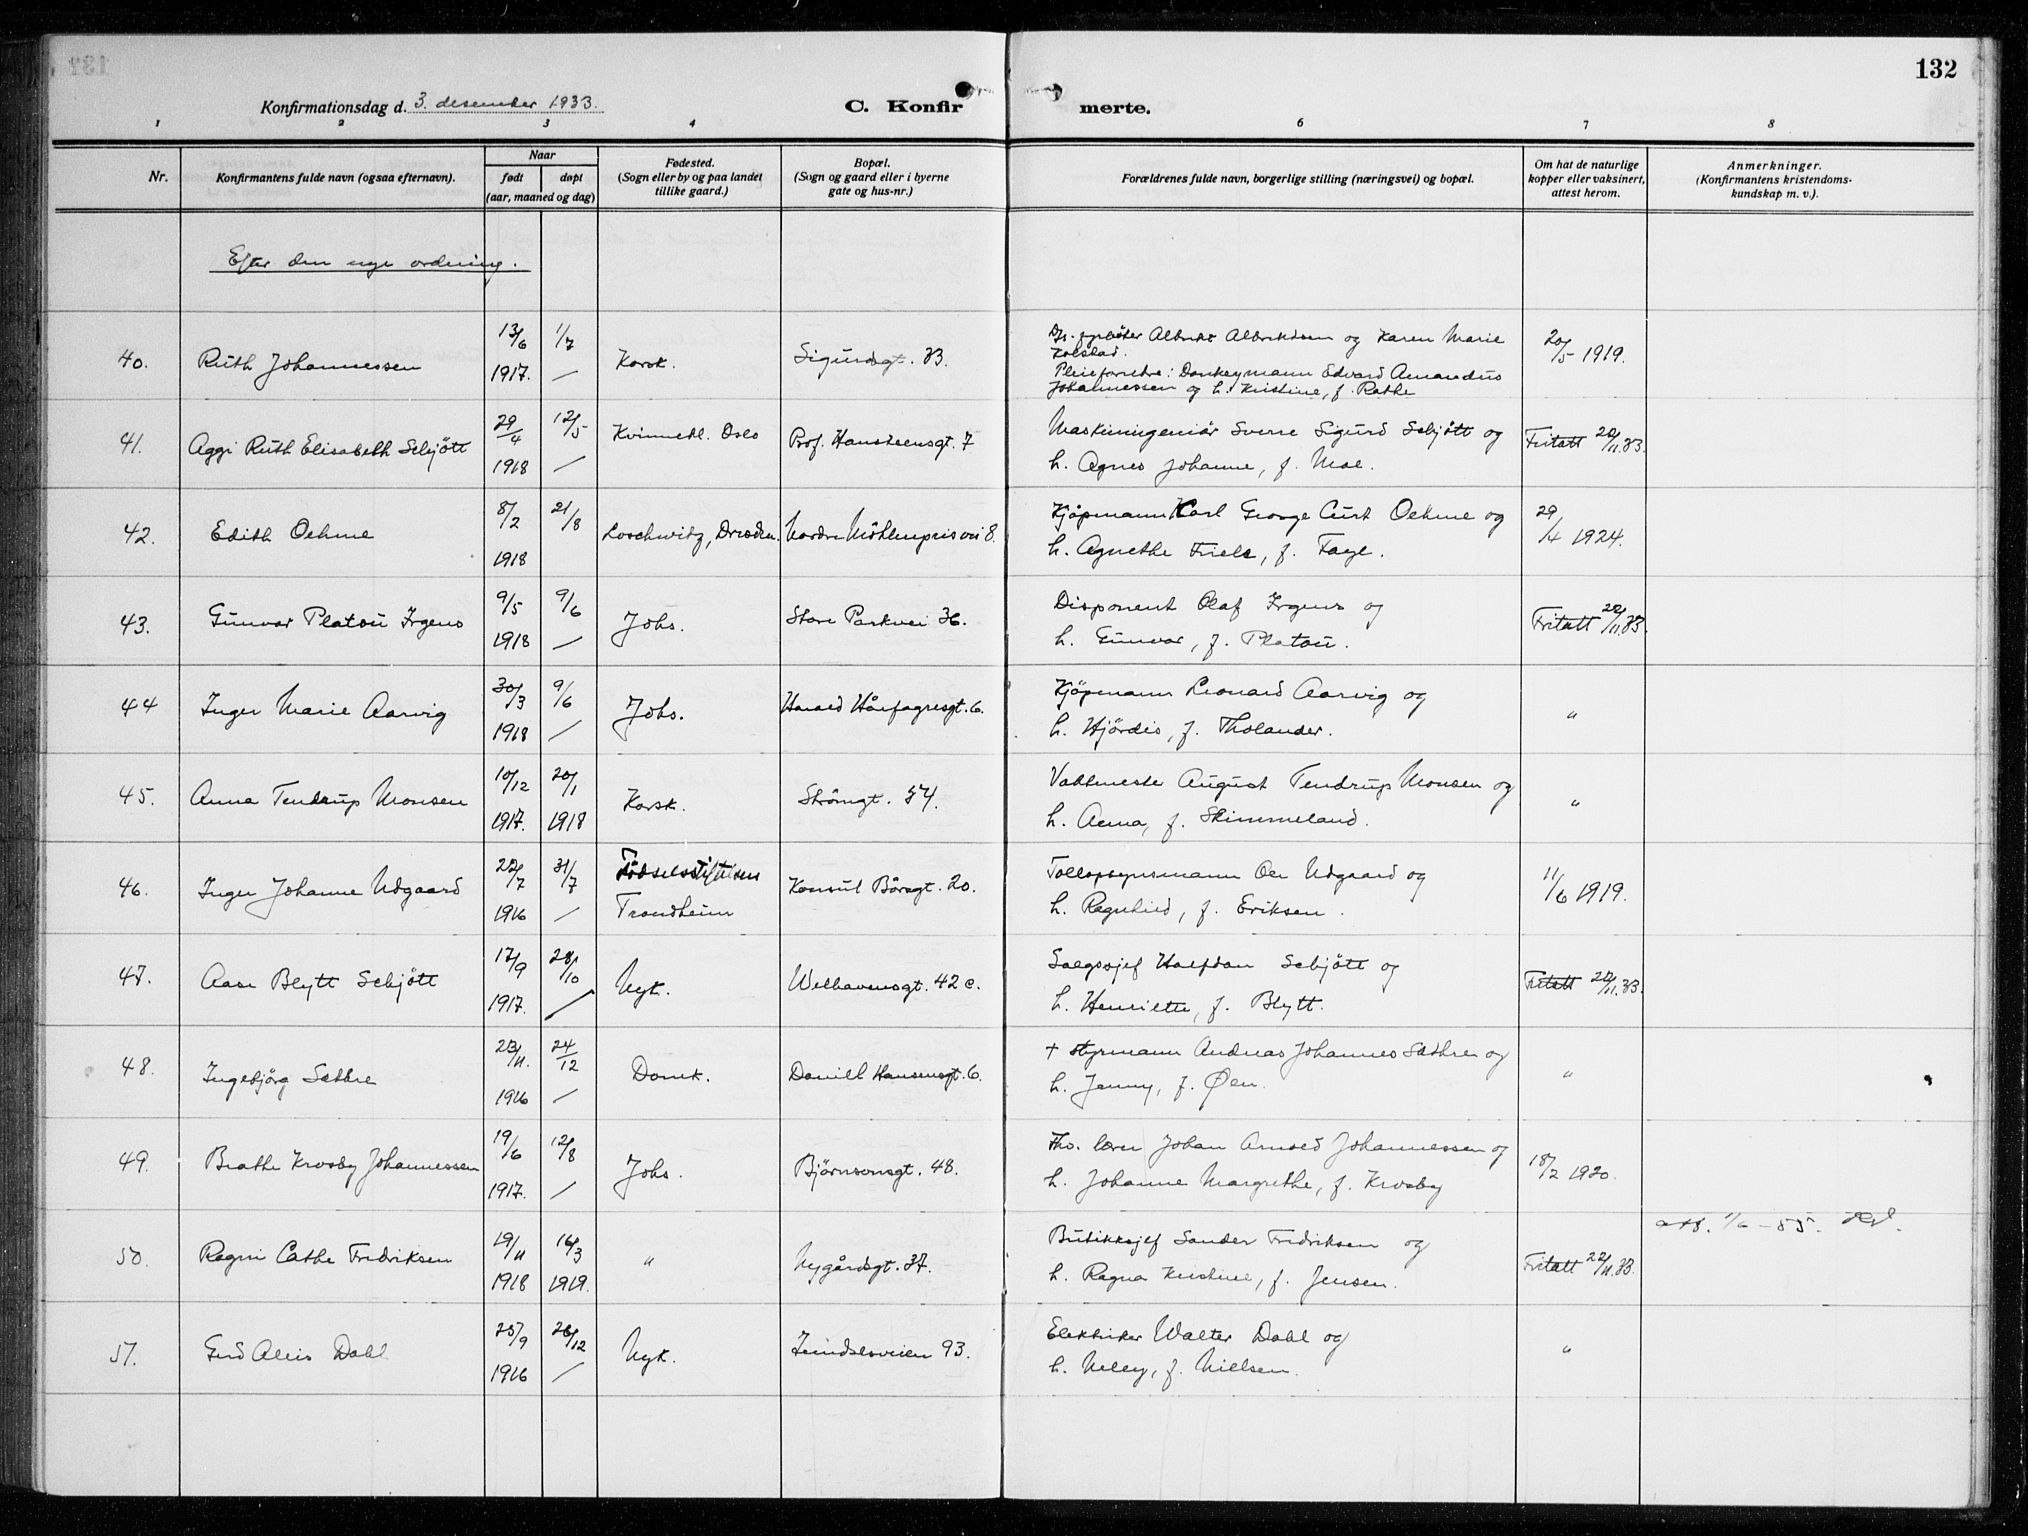 132
Konfirmationsdag d. 3. desember 1933.
C. Konfir
merte.
1 2 3 4 5 6 7 8
Nr.
Konfirmantens fulde navn (ogsaa efternavn).
Naar
født døpt
(aar, maaned og dag)
Fødested.
(Sogn eller by og paa landet
tillike gaard.)
Bopæl.
(Sogn og gaard eller i byerne
gate og hus-nr.)
Forældrenes fulde navn, borgerlige stilling (næringsvei) og bopæl.
Om hat de naturlige
kopper eller vaksinert,
attest herom.
Anmerkninger.
(Konfirmantens kristendoms-
kundskap m. v.).
Efter den nye ordning.
13/6 1/7 fyrböter Albrikt Albriktsen og Karen Marie
40. Ruth Johannessen Korsk. Sigurdsgt. 33. Kolstad. 20/5 1919.
1917. — Pleieforeldre: Donkeymann Edvard Amandus
Johannessen og h. Kristine, f. Rathe
29/4 12/5 Maskiningeniör Sverre Sigurd Schjött og
41. Aggi Ruth Elisabeth Schjött Kvinnekl. Oslo Prof. Hansteensgt. 7 Fritatt 22/11.33.
1918 — h. Agnes Johanne, f. Moe.
8/2 21/8 Kjöpmann Karl George Curt Oehme og 29/4 1924.
42. Edith Oehme Loschwitz, Dresden. Nordre Möhlenprisvei 8.
1918 h. Agnethe Friele, f. Faye.
9/5 9/6 Disponent Olaf Irgens og
43. Gunvor Platou Irgens Johs. Store Parkvei 36. Fritatt 22/11.33.
1918 — h. Gunvor, f. Platou.
30/3 9/6 Kjöpmann Leonard Aarvig og
44 Inger Marie Aarvig Johs. Harald Hårfagresgt. 6. "
1918 — h. Hjördis, f. Tholander.
10/12 20/1 Vaktmester August Tendrup Monsen og
45. Anna Tendrup Monsen Korsk. Strömgt. 54. "
1917. 1918 h. Anna, f. Skimmeland.
22/7 31/7 Födselsstiftelsen Tollopsynsmann Ole Udgaard og
46. Inger Johanne Udgaard Konsul Börsgt. 20. 11/6 1919.
1916 — Trondheim h. Ragnhild, f. Eriksen.
17/9 28/10 Salgssjef Halfdan Schjött og
47. Aase Blytt Schjött Nyk. Welhavensgt. 42 c. Fritatt 22/11.33.
1917. — h. Henriette, f. Blytt.
23/11. 24/12 + styrmann Andreas Johannes Sæthre og
48. Ingebjörg Sæthre Domk. Daniel Hansensgt. 6. "
1916 — h. Jenny, f. Øen.
19/6 12/8 Johan Arnold Johannessen og
49. Beathe Krosby Johannessen Johs. Björnsonsgt. 48. 18/2 1920.
1917. — h. Johanne Margrethe, f. Krosby
att. 1/6 - 55.
19/11 16/3 Butikksjef Sander Fredriksen og
50. Ragni Cathe Fredriksen " Nygårdsgt. 37. Fritatt 22/11.33.
1918 1919. h. Ragna Kristine, f. Jensen.
25/9 26/12 Elektriker Walter Dahl og
51. Gerd Alvis Dahl Nyk. 93. "
1916 — h. Nelly, f. Nielsen.